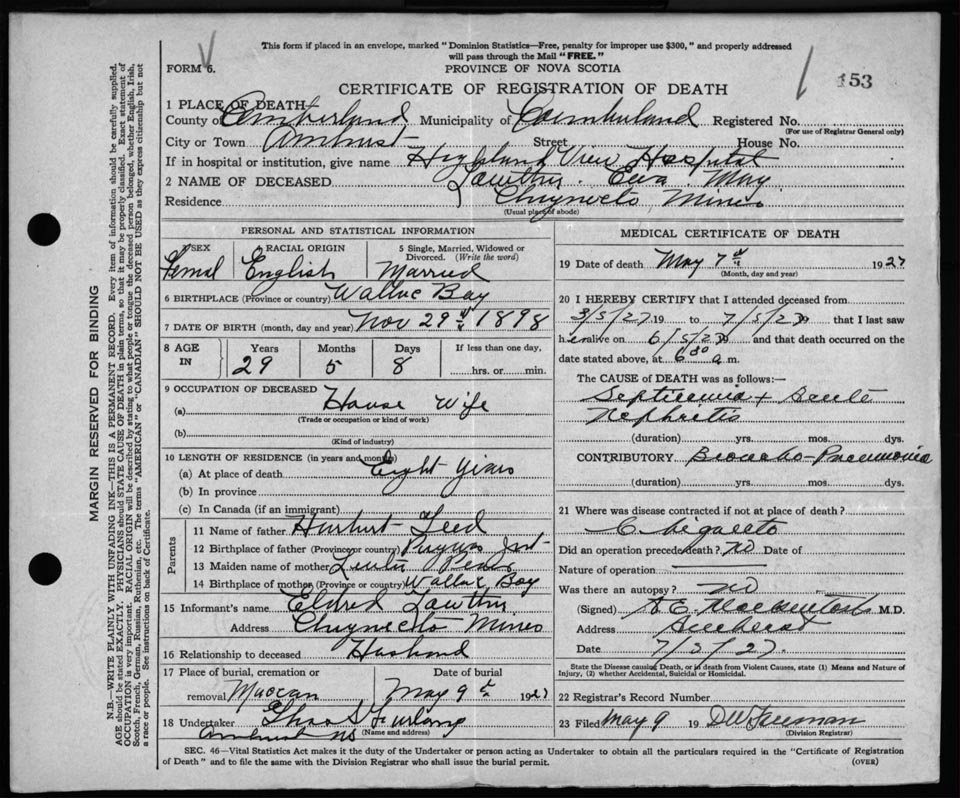 This form if placed in an envelope, marked "Dominion Statistics—Free, penalty for improper use $300," and properly addressed
will pass through the Mail "FREE."
FORM 6.
PROVINCE OF NOVA SCOTIA
153
CERTIFICATE OF REGISTRATION OF DEATH
1 PLACE OF DEATH
County of Cumberland Municipality of Cumberland Registered No.
(For use of Registrar General only)
City or Town Amherst Street House No.
If in hospital or institution, give name Highland View Hospital
2 NAME OF DECEASED Lowther. Eva. May
Residence Chignecto Mines
(Usual place of abode)
PERSONAL AND STATISTICAL INFORMATION
3 SEX 4 RACIAL ORIGIN 5 Single, Married, Widowed or Divorced. (Write the word)
Femal English Married
6 BIRTHPLACE (Province or country) Wallace Bay
7 DATE OF BIRTH (month, day and year) Nov 29th 1898
8 AGE IN Years Months Days If less than one day,
29 5 8 hrs. or min.
9 OCCUPATION OF DECEASED
(a) House Wife
(Trade or occupation or kind of work)
(b)
(Kind of industry)
10 LENGTH OF RESIDENCE (in years and months)
(a) At place of death Eight years
(b) In province
(c) In Canada (if an immigrant)
Parents
11 Name of father Teed
12 Birthplace of father (Province or country)
13 Maiden name of mother
14 Birthplace of mother (Province or country) Wallace Bay
15 Informant's name Eldred Lowther
Address Chignecto Mines
16 Relationship to deceased Husband
17 Place of burial, cremation or Date of burial
removal Maccan May 9th 1927
18 Undertaker Furlong
Amherst NS (Name and address)
MEDICAL CERTIFICATE OF DEATH
19 Date of death May 7th 1927
(Month, day and year)
20 I HEREBY CERTIFY that I attended deceased from
3/5/27 19 to 7/5/27 that I last saw
her alive on 6/5/27 and that death occurred on the
date stated above, at 6 30 a m.
The CAUSE OF DEATH was as follows:
Septicemia + Acute
Nephritis
(duration) yrs. mos. dys.
CONTRIBUTORY Broncho-Pneumonia
(duration) yrs. mos. dys.
21 Where was disease contracted if not at place of death?
Chignecto
Did an operation precede death? no Date of
Nature of operation
Was there an autopsy? no
(Signed) A E. Mackintosh M.D.
Address Amherst
Date 7/5/27.
State the Disease causing Death, or in death from Violent Causes, state (1) Means and Nature of
Injury, (2) whether Accidental, Suicidal or Homicidal.
22 Registrar's Record Number
23 Filed May 9 19
(Division Registrar)
SEC. 46—Vital Statistics Act makes it the duty of the Undertaker or person acting as Undertaker to obtain all the particulars required in the "Certificate of Registration
of Death" and to file the same with the Division Registrar who shall issue the burial permit. (OVER)
MARGIN RESERVED FOR BINDING
N.B.—WRITE PLAINLY WITH UNFADING INK—THIS IS A PERMANENT RECORD. Every item of information should be carefully supplied.
AGE should be stated EXACTLY. PHYSICIANS should STATE CAUSE OF DEATH in plain terms, so that it may be properly classified. Exact statement of
OCCUPATION is very important. RACIAL ORIGIN will be described by stating to what people or tongue the deceased person belonged, whether English, Irish,
Scotch, French, German, Russian, Ruthenian, etc. The terms "AMERICAN" or "CANADIAN" SHOULD NOT BE USED as they express citizenship but not
a race or people. See instructions on back of Certificate.